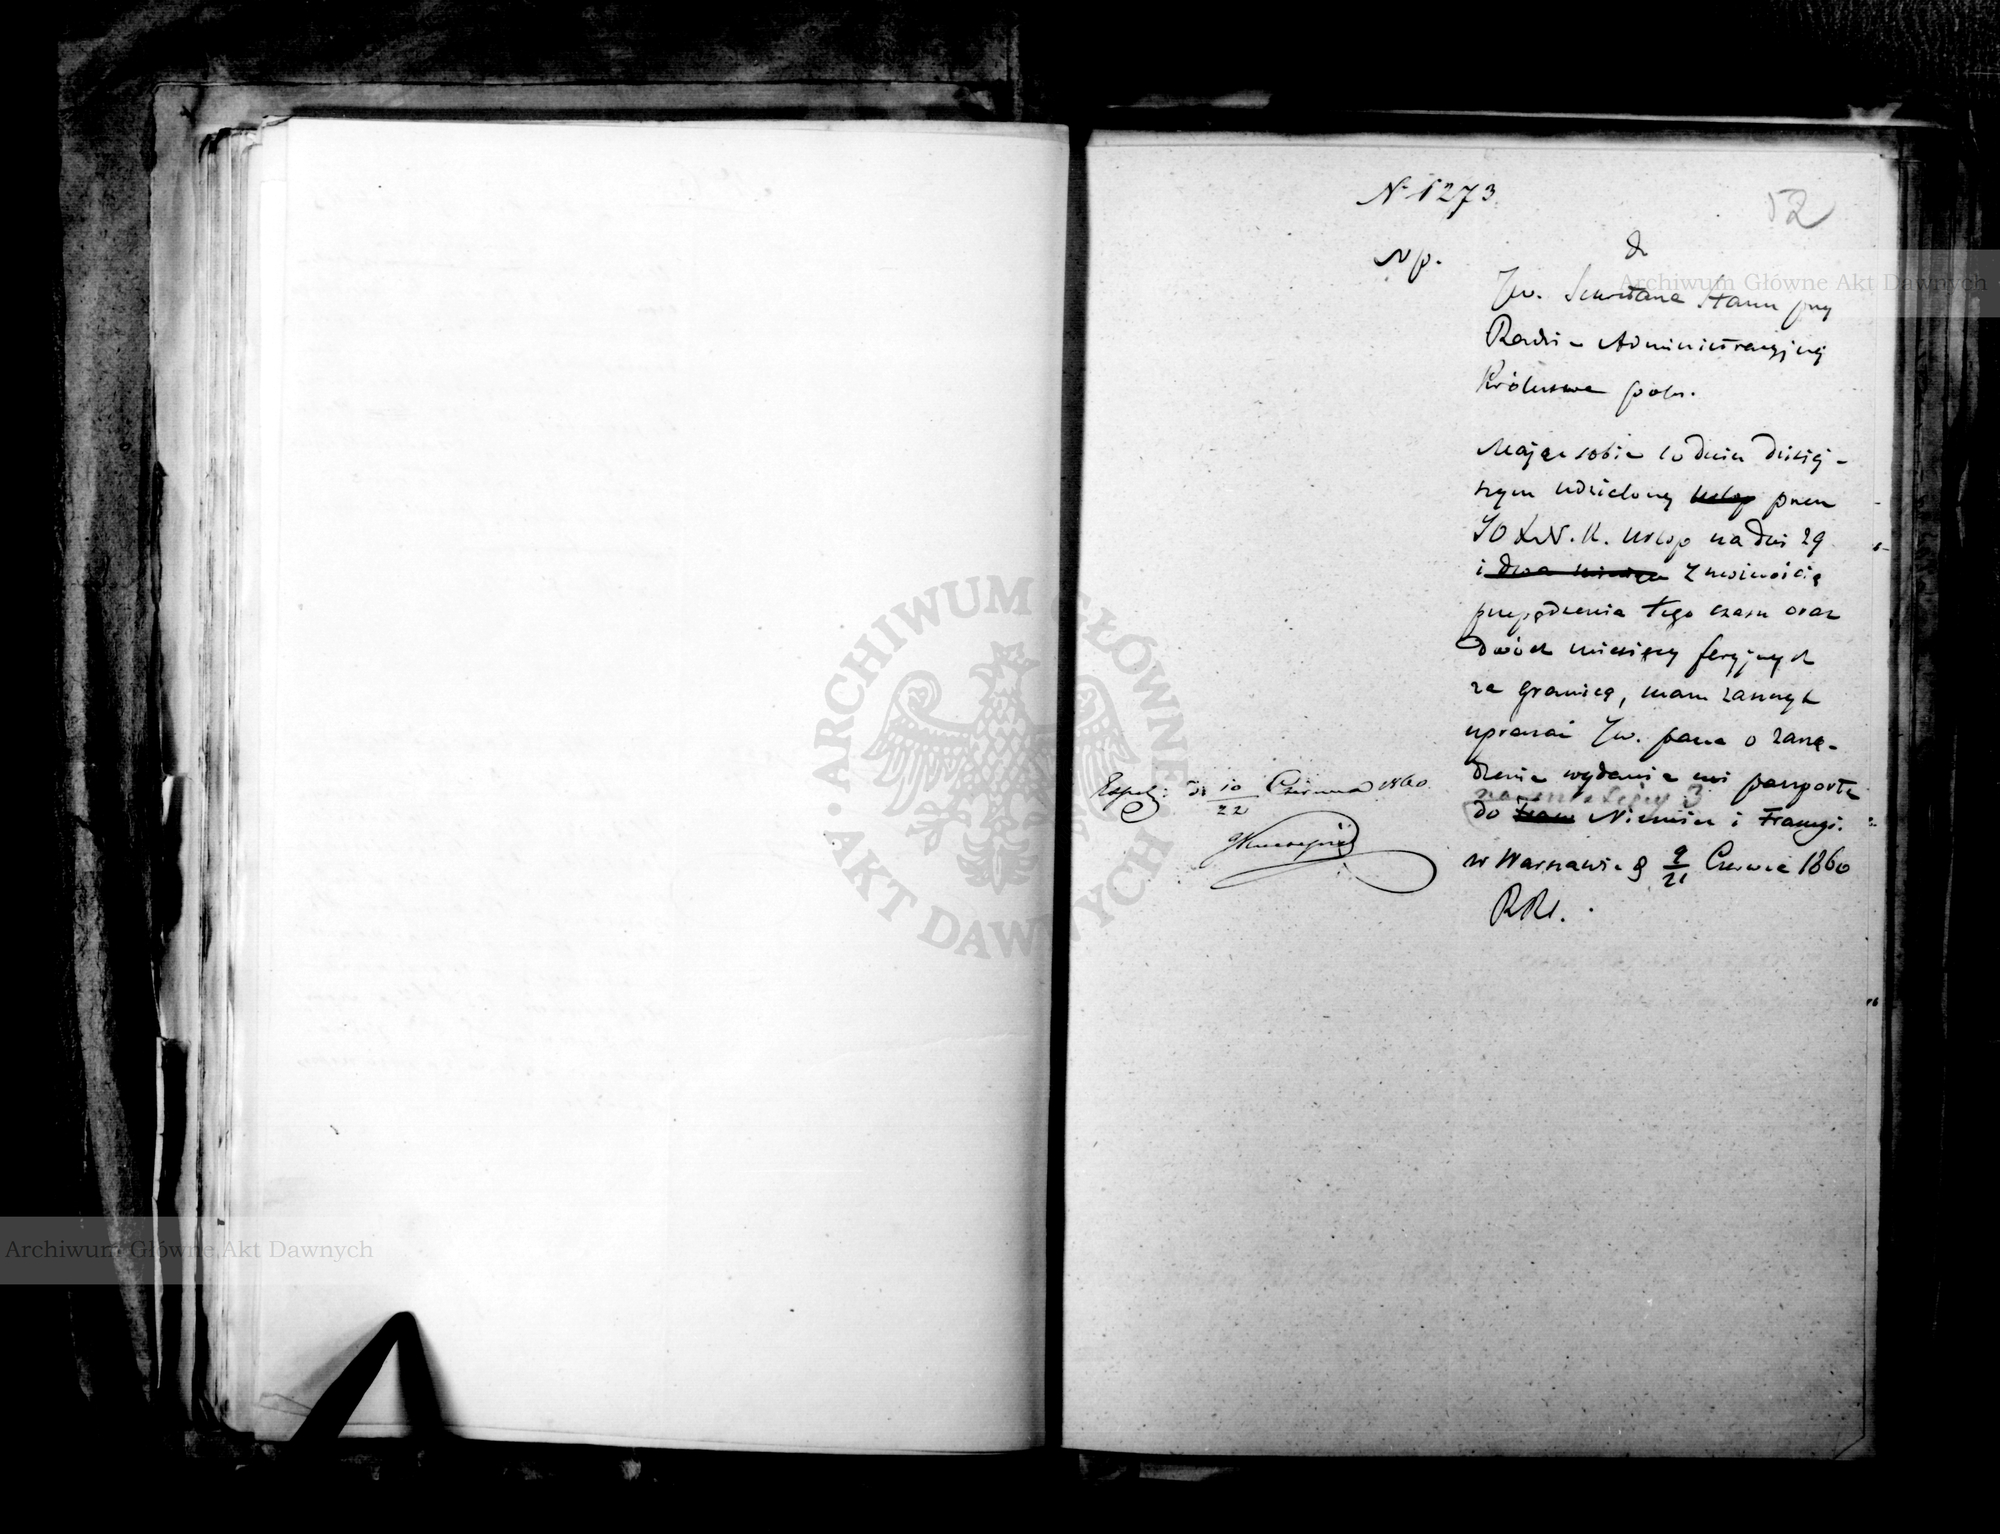 N 1273
52
Np.
do
JW. Sekretarza Stanu przy
Radzie Administracyjnej
Królestwa pols.
Mając sobie w dniu dzisiej-
szym udzielony urlop przez
JO X. N. K. urlop na dni 29
i dwa miesiące z możnością
przepędzenia tego czasu oraz
dwóch miesięcy feryjnych
za granicą, mam zaszczyt
upraszać JW. pana o zarzą-
dzenie wydania mi paszportu
na miesięcy 3
do Niemiec i Francyi.
w Warszawie d 9/21 Czerwca 1860
RRS.
Exped: d 10/22 Czerwca 1860
Archiwum Główne Akt Dawnych
ARCHIWUM GŁÓWNE AKT DAWNYCH
Archiwum Główne Akt Dawnych